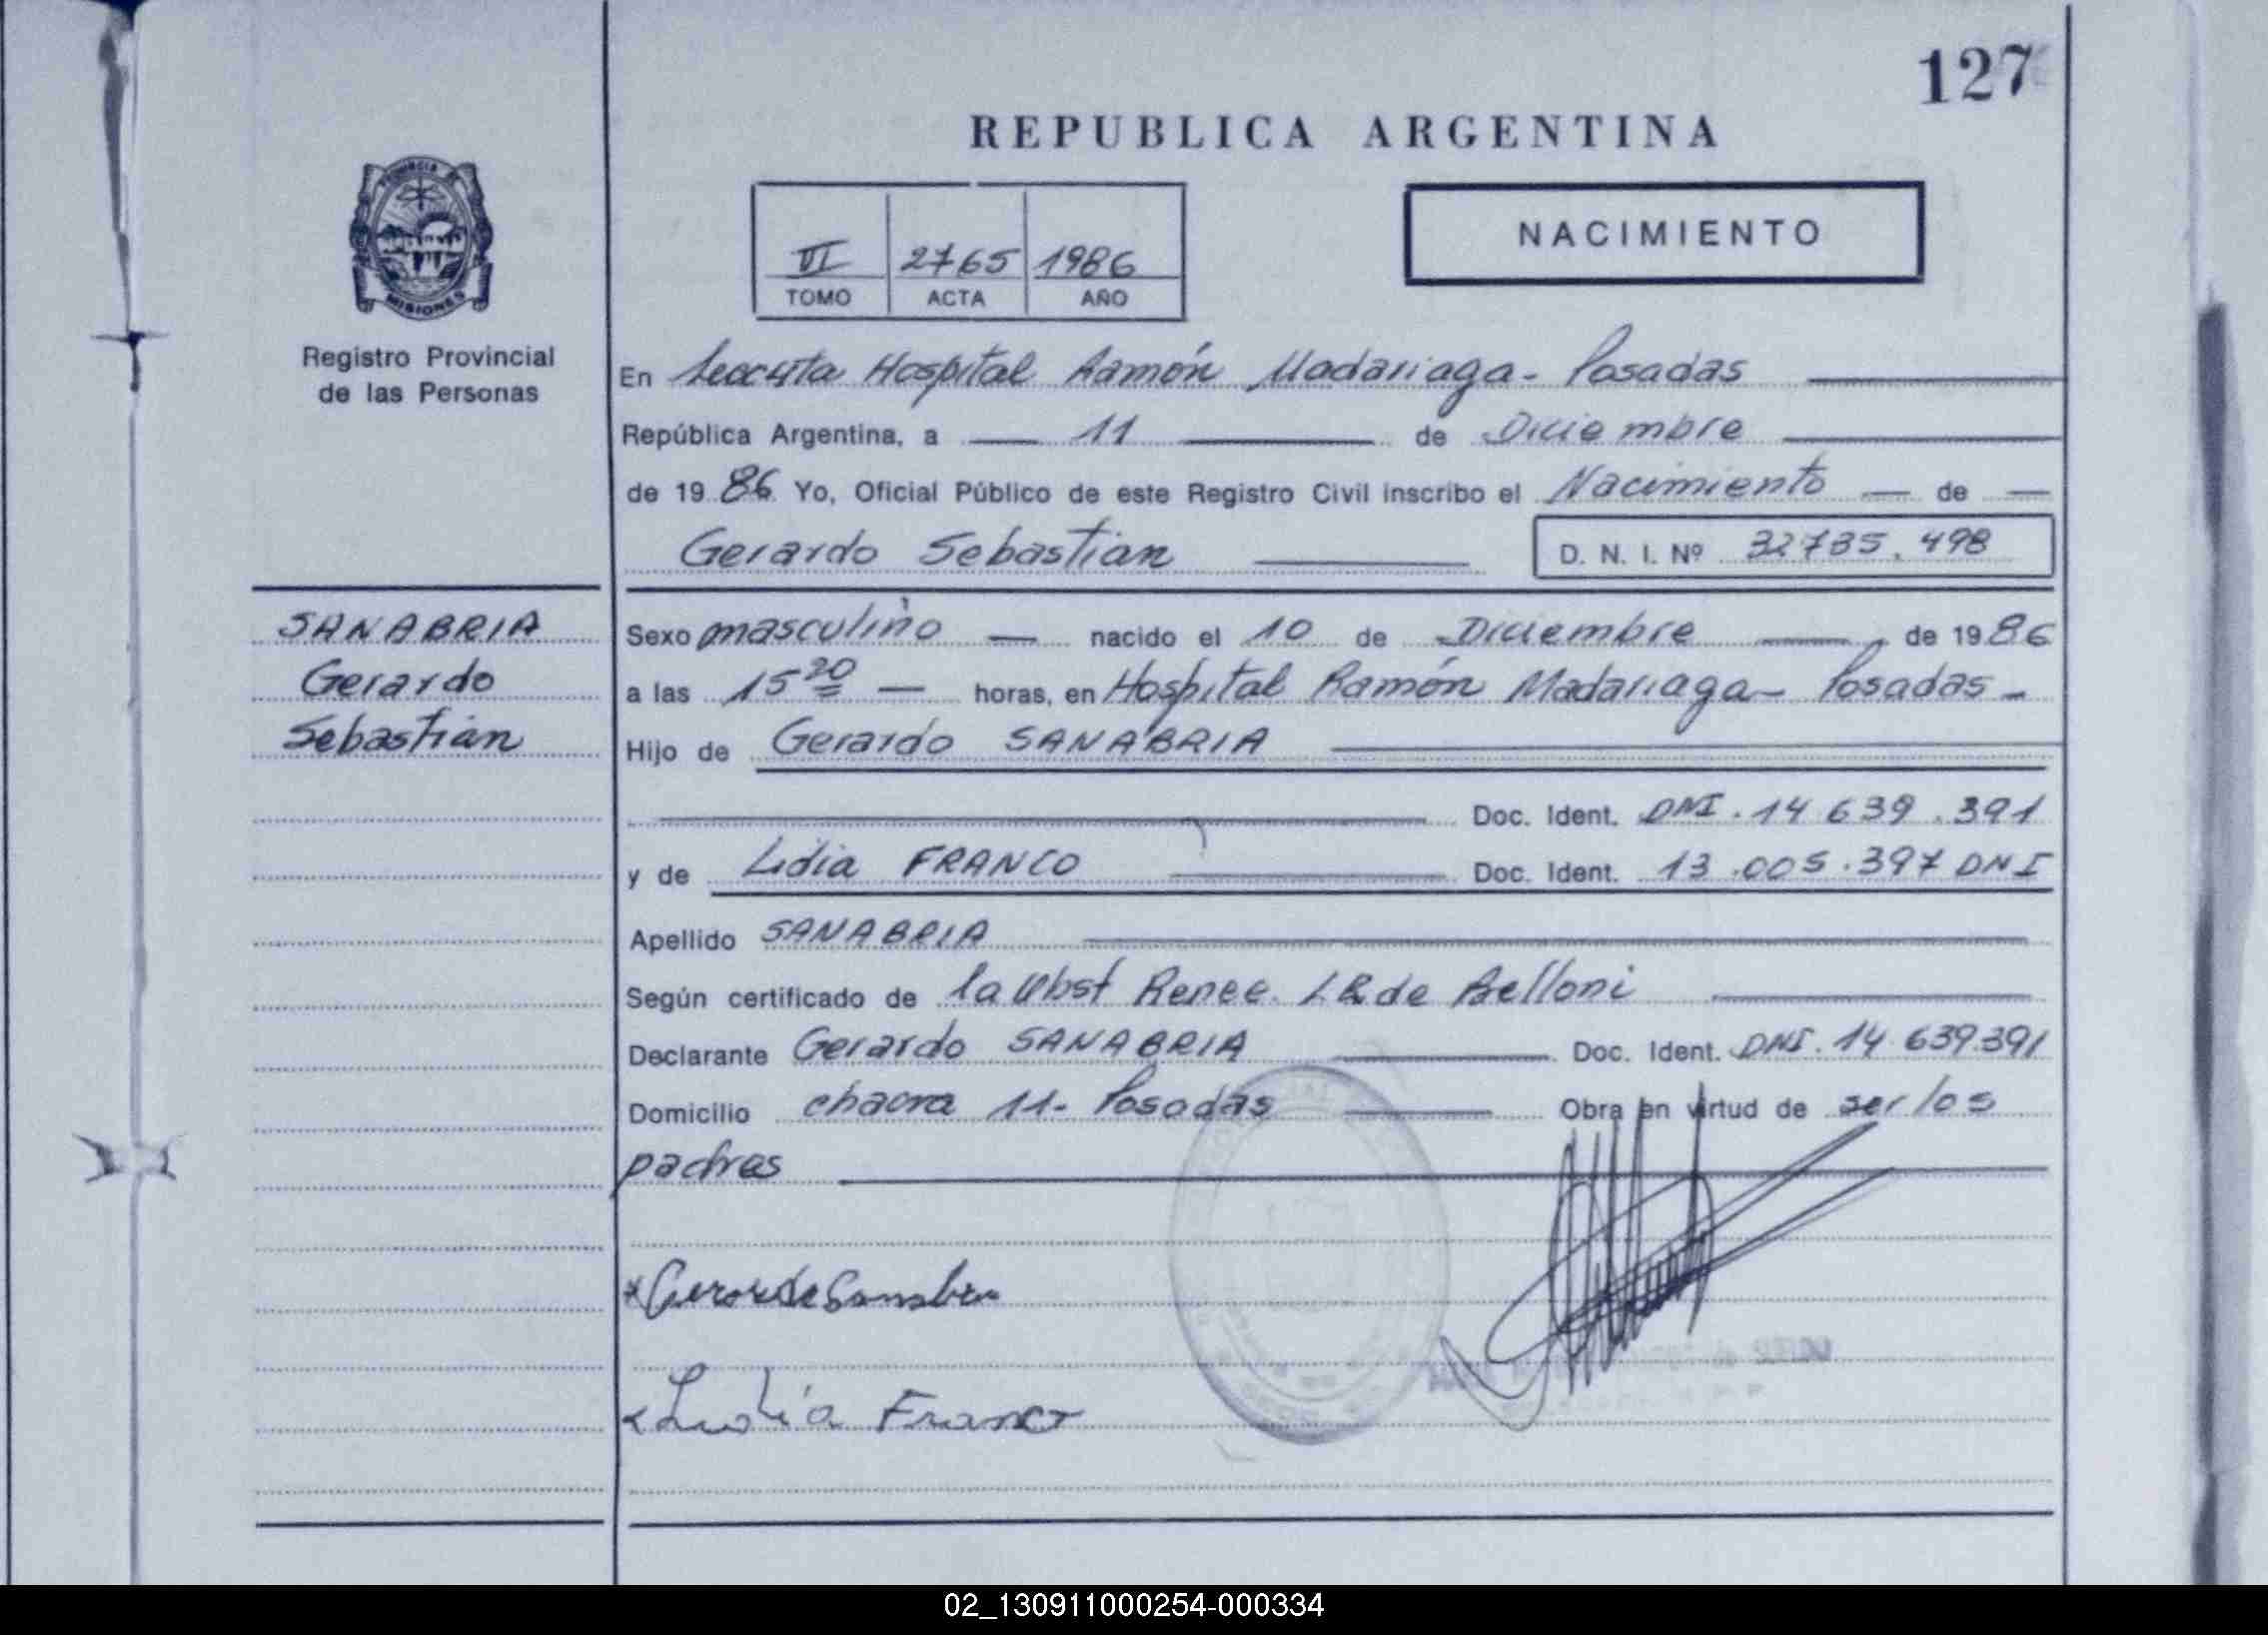 127
REPUBLICA ARGENTINA
PROVINCIA DE
MISIONES
VI 2765 1986
TOMO ACTA AÑO
NACIMIENTO
Registro Provincial
de las Personas
En Hospital Ramón Madariaga - Posadas
República Argentina, a 11 de Diciembre
de 1986 Yo, Oficial Público de este Registro Civil inscribo el Nacimiento de
Gerardo Sebastian D. N. I. Nº 32735.498
SANABRIA
Gerardo
Sebastian
Sexo masculino nacido el 10 de Diciembre de 1986
a las 15 20 horas, en Hospital Ramón Madariaga - Posadas -
Hijo de Gerardo SANABRIA
Doc. Ident. DNI. 14 639.391
y de Lidia FRANCO Doc. Ident. 13.005.397 DNI
Apellido SANABRIA
Según certificado de la Obst Renee. de Belloni
Declarante Gerardo SANABRIA Doc. Ident. DNI. 14 639.391
Domicilio chacra 11- Posadas Obra en virtud de ser los
padres
Gerardo Sanabria
Lidia Franco
02_130911000254-000334